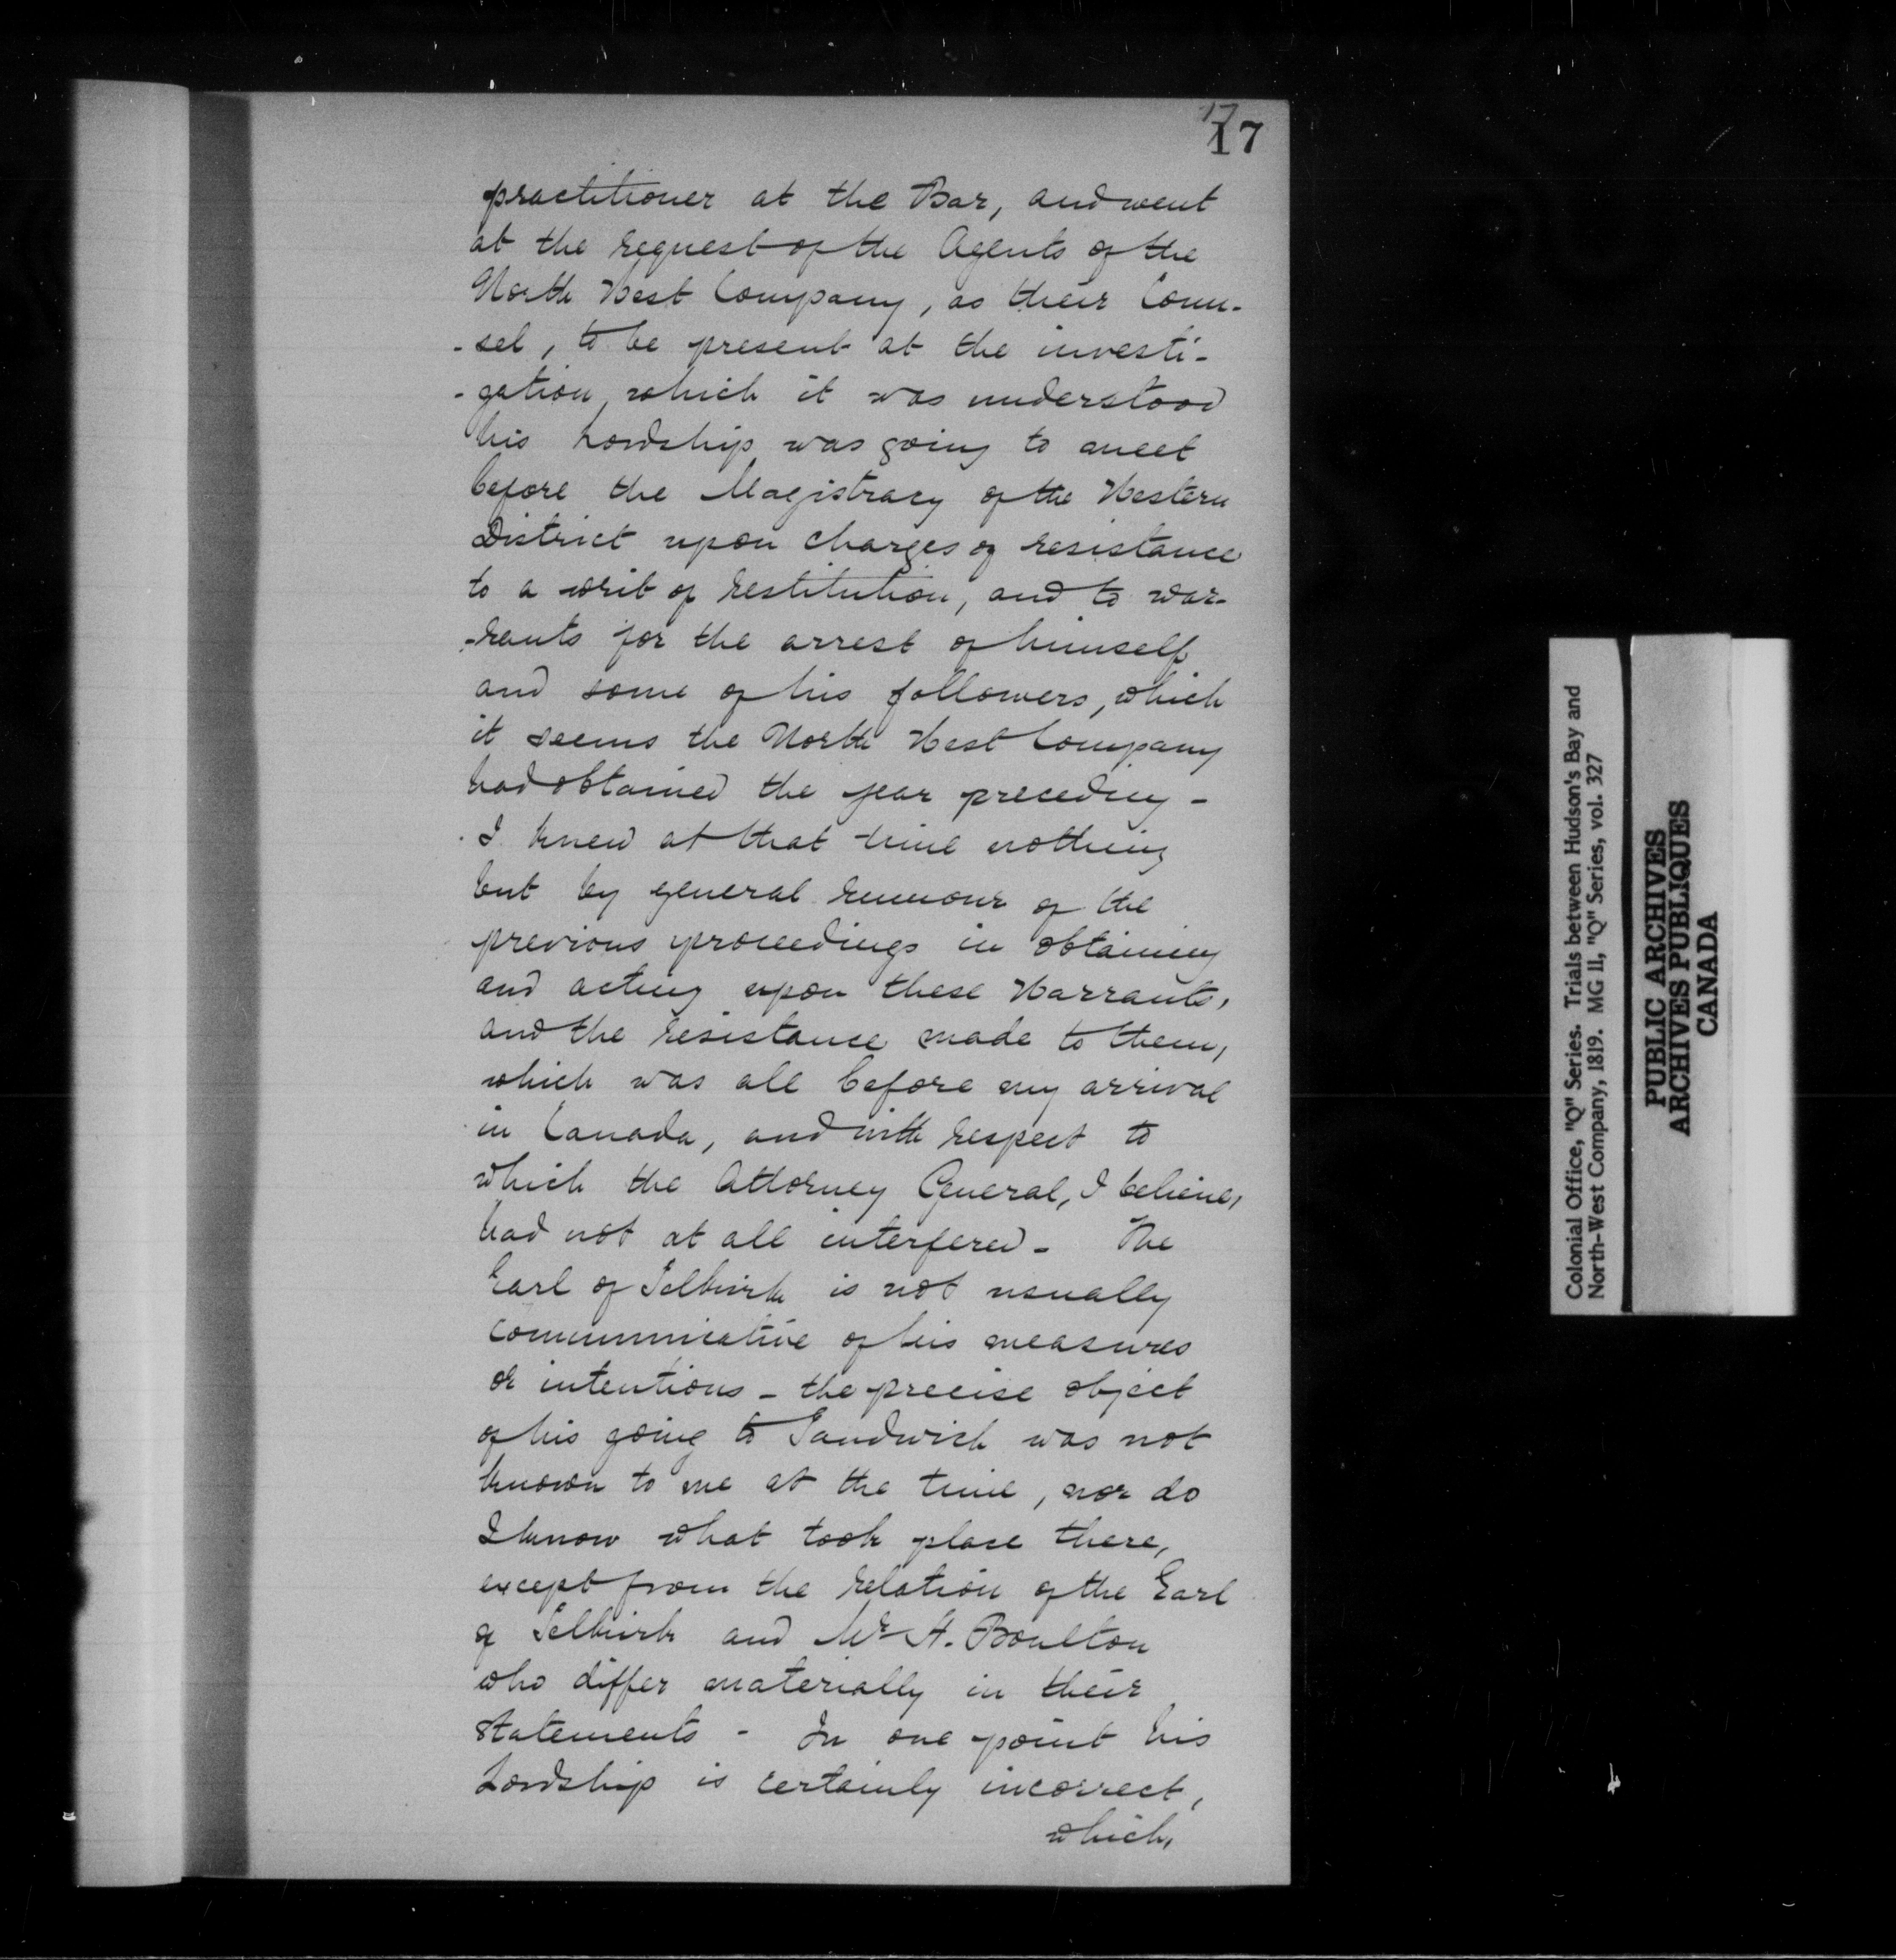 17
17
practitioner at the Bar, and went
at the request of the Agents of the
North West Company, as their Coun-
-sel, to be present at the investi-
-gation, which it was understood
his Lordship was going to meet
before the Magistracy of the Western
District upon charges of resistance
to a writ of restitution, and to war-
-rants for the arrest of himself
and some of his followers, which
it seems the North West Company
had obtained the year preceding -
I knew at that time nothing
but by general rumour of the
previous proceedings in obtaining
and acting upon these Warrants,
and the resistance made to them,
which was all before my arrival
in Canada, and with respect to
which the Attorney General, I believe,
had not at all interfered - The
Earl of Selkirk is not usually
communicative of his measures
or intentions - the precise object
of his going to Sandwich was not
known to me at the time, nor do
I know what took place there,
except from the relation of the Earl
of Selkirk and Mr H. Boulton
who differ materially in their
statements - In one point his
Lordship is certainly incorrect,
which,
Colonial Office, "Q" Series. Trials between Hudson's Bay and
North-West Company, 1819. MG 11, "Q" Series, vol. 327
PUBLIC ARCHIVES
ARCHIVES PUBLIQUES
CANADA